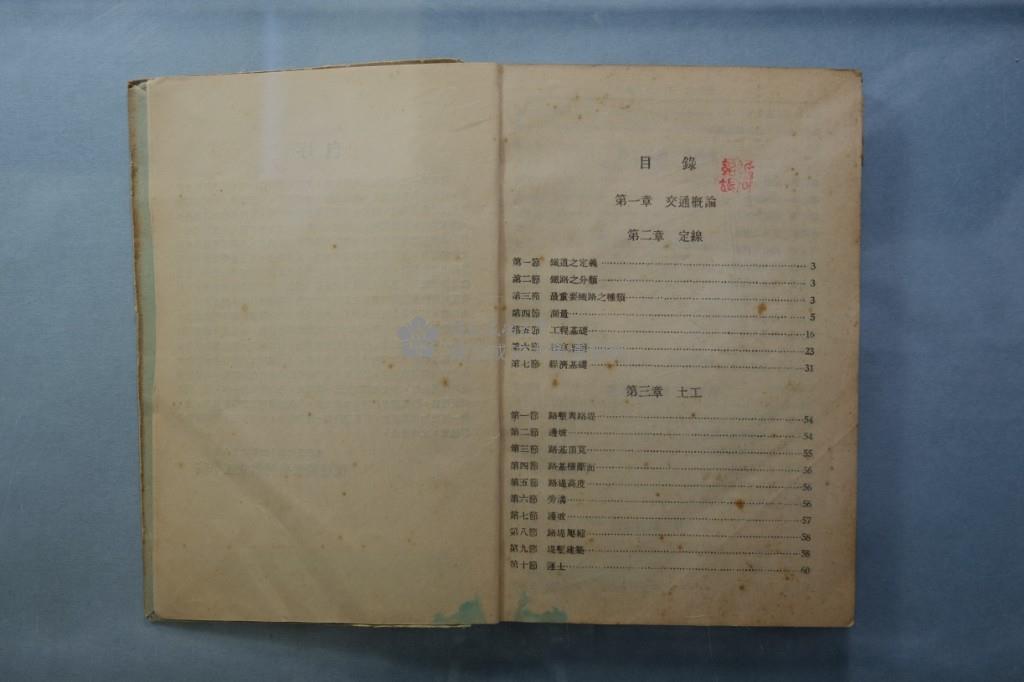 目 錄
第一章 交通概論
第二章 定線
第一節 鐵道之定義 3
第二節 鐵路之分類 3
第三節 最重要鐵路之種類 3
第四節 測量 5
第五節 工程基礎 16
第六節 23
第七節 經濟基礎 31
第三章 土工
第一節 路塹與路堤 54
第二節 邊坡 54
第三節 路基頂寬 55
第四節 路基橫斷面 56
第五節 路堤高度 56
第六節 旁溝 56
第七節 護坡 57
第八節 路堤壓縮 58
第九節 堤塹建築 58
第十節 運土 60